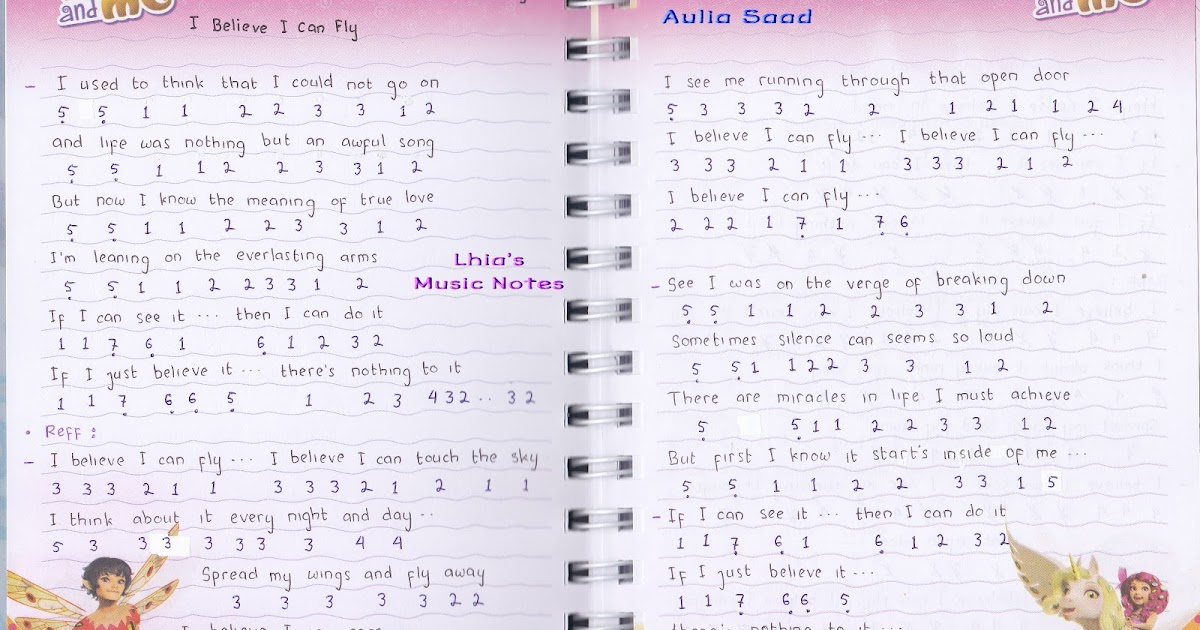 and me
I Believe I Can Fly
- I used to think that I could not go on
5 5 1 1 2 2 3 3 1 2
and life was nothing but an awful song
5 5 1 1 2 2 3 3 1 2
But now I know the meaning of true love
5 5 1 1 2 2 3 3 1 2
I'm leaning on the everlasting arms
5 5 1 1 2 2 3 3 1 2
If I can see it ... then I can do it
1 1 7 6 1 6 1 2 3 2
If I just believe it ... there's nothing to it
1 1 7 6 6 5 1 2 3 4 3 2 .. 3 2
• Reff :
- I believe I can fly ... I believe I can touch the sky
3 3 3 2 1 1 3 3 3 2 1 2 1 1
I think about it every night and day ..
5 3 3 3 3 3 3 3 4 4
Spread my wings and fly away
3 3 3 3 3 2 2
Lhia's
Music Notes
and me
Aulia Saad
I see me running through that open door
5 3 3 3 2 2 1 2 1 1 2 4
I believe I can fly ... I believe I can fly ...
3 3 3 2 1 1 3 3 3 2 1 2
I believe I can fly ...
2 2 2 1 7 1 7 6
- See I was on the verge of breaking down
5 5 1 1 2 2 3 3 1 2
Sometimes silence can seems so loud
5 5 1 1 2 2 3 3 1 2
There are miracles in life I must achieve
5 5 1 1 2 2 3 3 1 2
But first I know it start's inside of me ...
5 5 1 1 2 2 3 3 1 5
- If I can see it ... then I can do it
1 1 7 6 1 6 1 2 3 2
If I just believe it ...
1 1 7 6 6 5
there's nothing to it ...